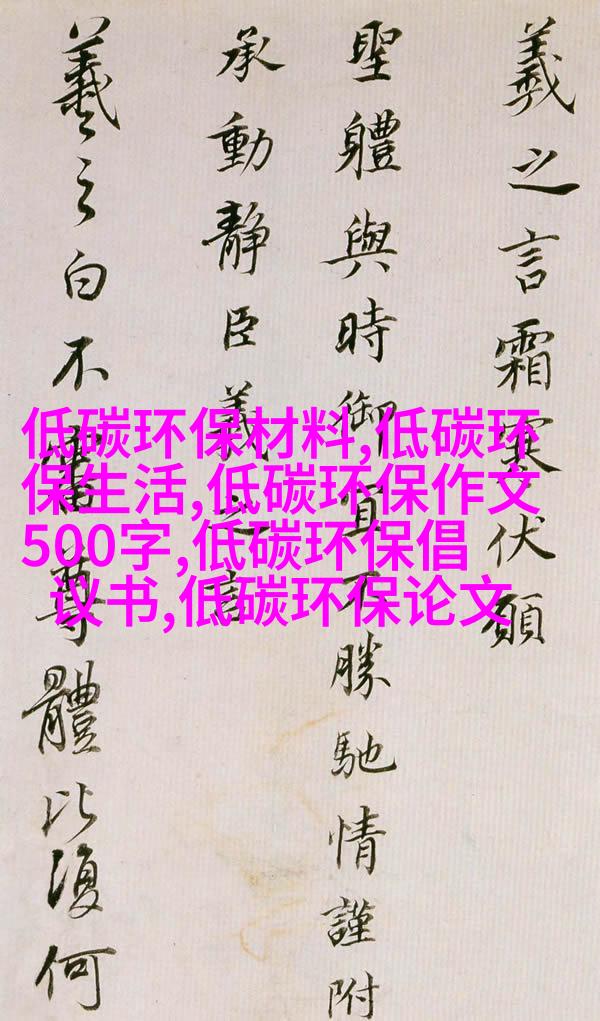 羲之言霜寒伏願
聖體與時御宜不勝馳情謹附
承動靜臣羲之言
羲之白不審尊體比復何
低碳环保材料,低碳环
保生活,低碳环保作文
500字,低碳环保倡
议书,低碳环保论文